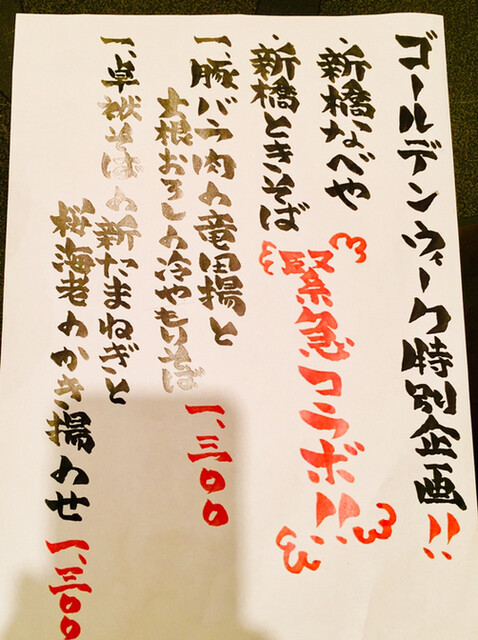 ゴールデンウィーク特別企画!!
・新橋なべや
・新橋ときそば
緊急コラボ!!
一、豚バラ肉の竜田揚と
大根おろしの冷やもりそば
一、三〇〇
一、卓袱そばの新たまねぎと
桜海老のかき揚のせ
一、三〇〇